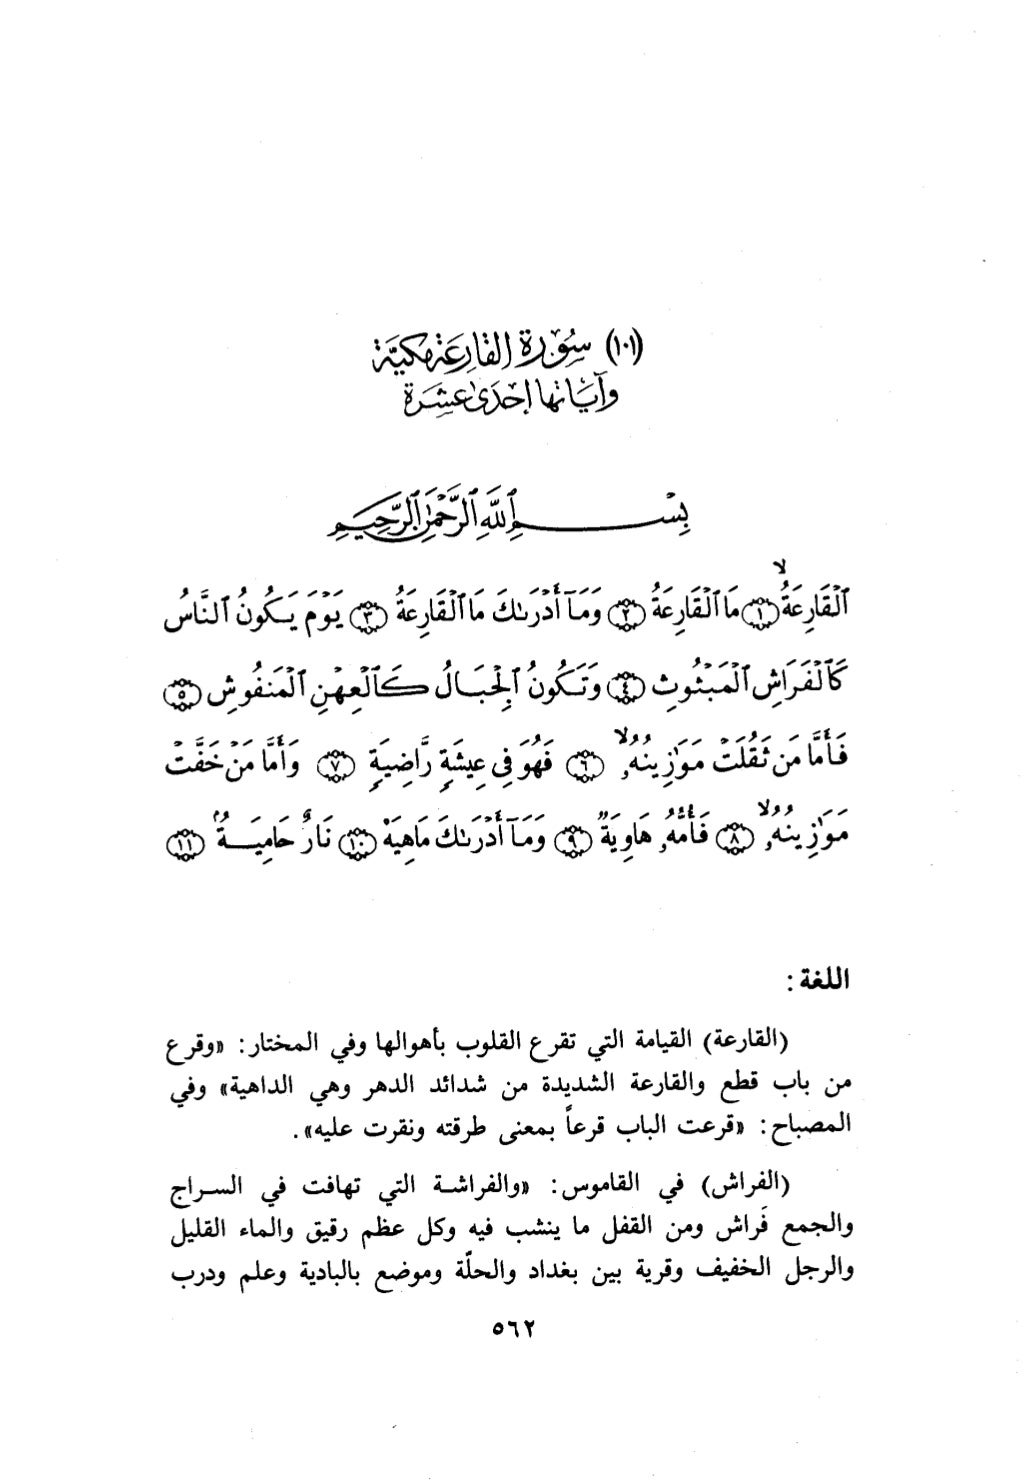 (١٠١) سُورَة القارِعَة مكيَّة
وآيَاتها إحْدَىٰ عَشِرَة
بِسْمِ ٱللَّهِ ٱلرَّحْمَٰنِ ٱلرَّحِيمِ
ٱلْقَارِعَةُ ۙ ١ مَا ٱلْقَارِعَةُ ٢ وَمَآ أَدْرَىٰكَ مَا ٱلْقَارِعَةُ ٣ يَوْمَ يَكُونُ ٱلنَّاسُ
كَٱلْفَرَاشِ ٱلْمَبْثُوثِ ٤ وَتَكُونُ ٱلْجِبَالُ كَٱلْعِهْنِ ٱلْمَنفُوشِ ٥
فَأَمَّا مَن ثَقُلَتْ مَوَٰزِينُهُۥ ۙ ٦ فَهُوَ فِى عِيشَةٍ رَّاضِيَةٍ ٧ وَأَمَّا مَنْ خَفَّتْ
مَوَٰزِينُهُۥ ۙ ٨ فَأُمُّهُۥ هَاوِيَةٌ ٩ وَمَآ أَدْرَىٰكَ مَاهِيَهْ ١٠ نَارٌ حَامِيَةٌۢ ١١
اللغة :
(القارعة) القيامة التي تقرع القلوب بأهوالها وفي المختار : «وقرع
من باب قطع والقارعة الشديدة من شدائد الدهر وهي الداهية» وفي
المصباح : «قرعت الباب قرعاً بمعنى طرقته ونقرت عليه» .
(الفراش) في القاموس : «والفراشة التي تهافت في السراج
والجمع فَراش ومن القفل ما ينشب فيه وكل عظم رقيق والماء القليل
والرجل الخفيف وقرية بين بغداد والحلّة وموضع بالبادية وعلم ودرب
٥٦٢